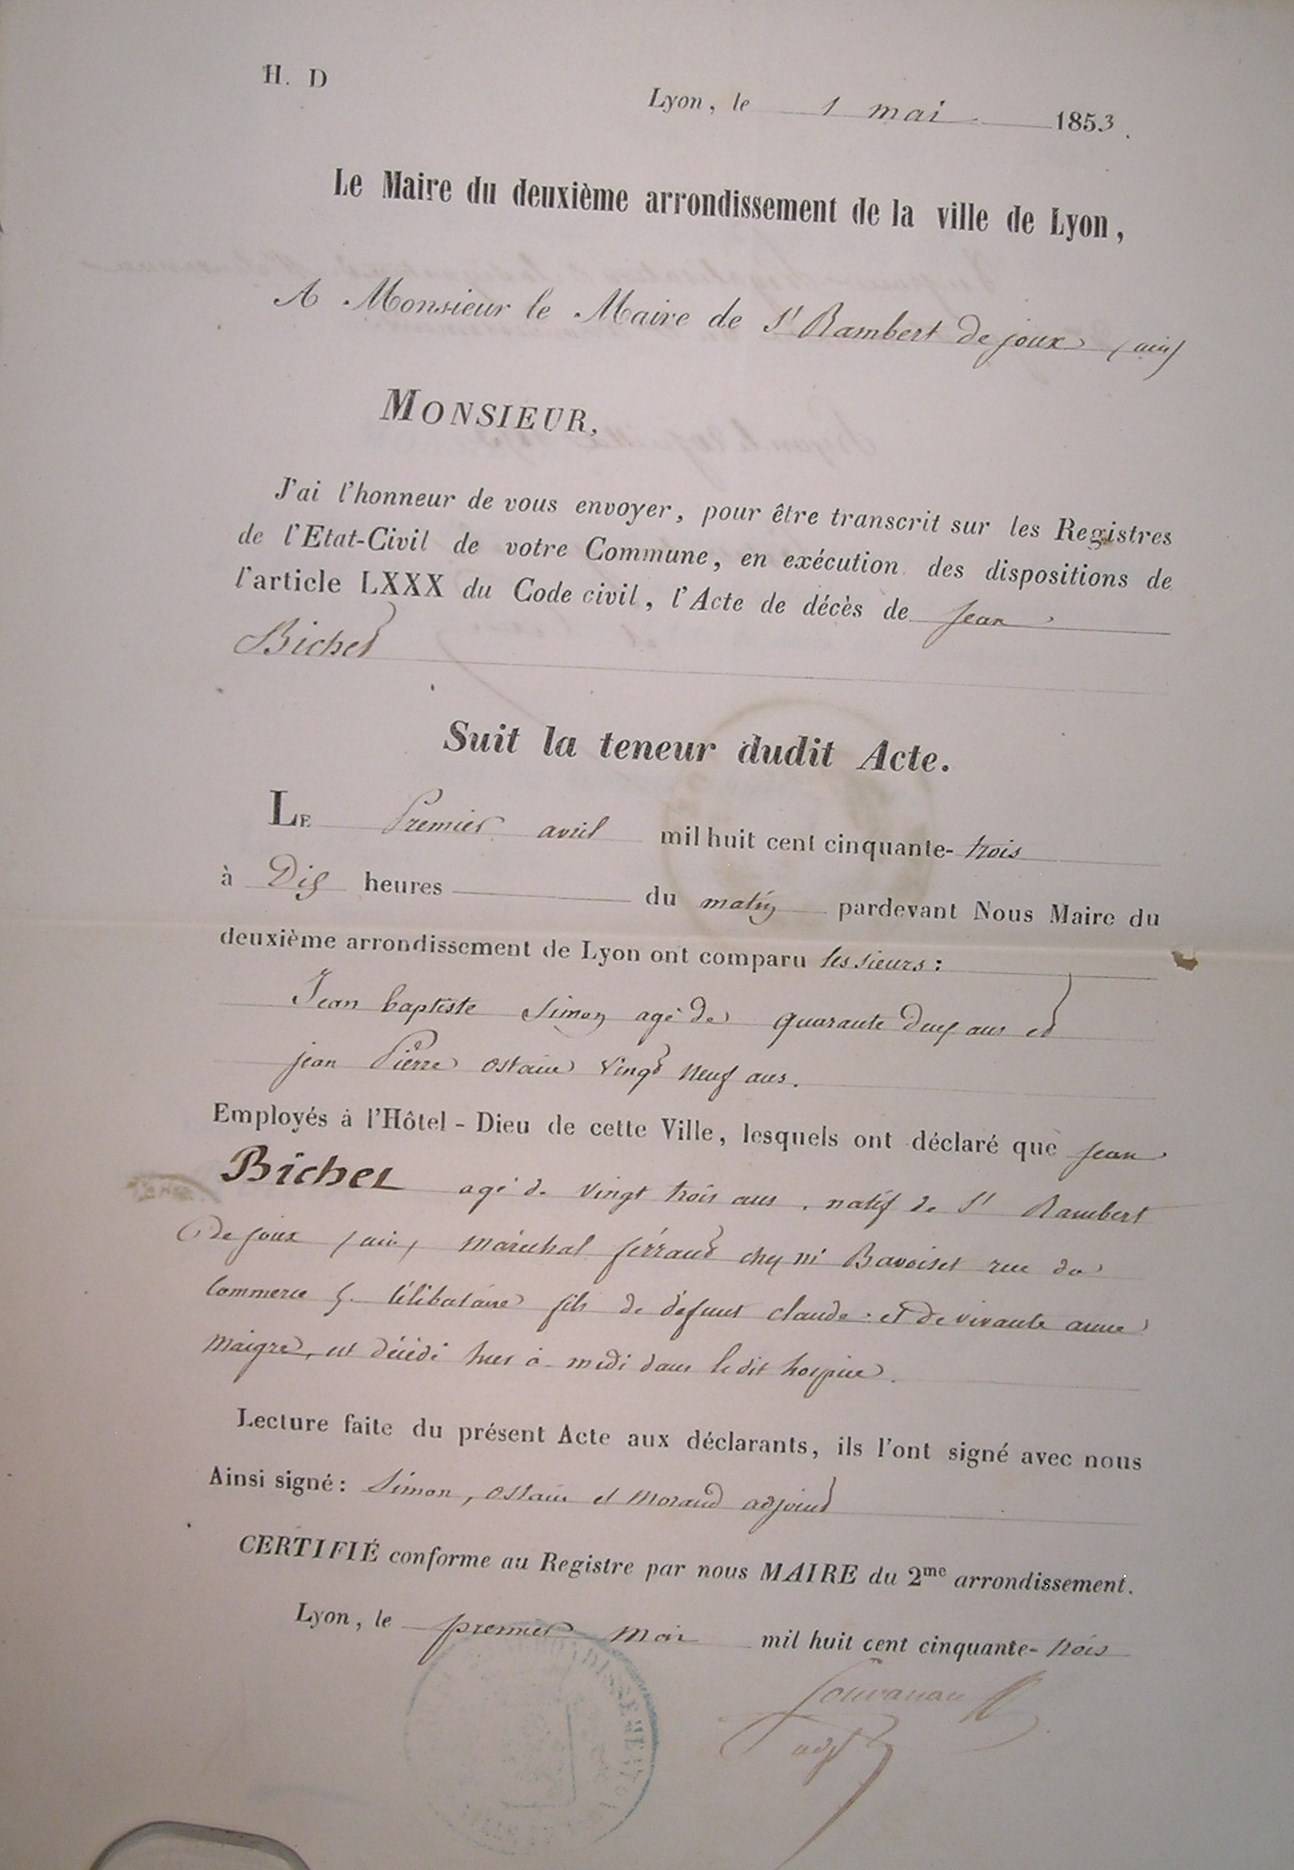 H. D
Lyon, le 1 mai 1853.
Le Maire du deuxième arrondissement de la ville de Lyon,
A Monsieur le Maire de St Rambert de joux (ain)
MONSIEUR,
J'ai l'honneur de vous envoyer, pour être transcrit sur les Registres
de l'Etat-Civil de votre Commune, en exécution des dispositions de
l'article LXXX du Code civil, l'Acte de décès de jean
Bichet
Suit la teneur dudit Acte.
LE Premier avril mil huit cent cinquante-trois
à Dix heures du matin pardevant Nous Maire du
deuxième arrondissement de Lyon ont comparu les sieurs:
Jean baptiste Simon agé de quarante deux ans et
jean Pierre ostain vingt neuf ans.
Employés à l'Hôtel-Dieu de cette Ville, lesquels ont déclaré que jean
Bichet agé de vingt trois ans, natif de St Rambert
De joux (ain) maréchal ferrant chez mr Bavoiset rue du
Commerce 5. célibataire fils de défunt claude et de vivante anne
maigre, est décédé hier à midi dans le dit hospice.
Lecture faite du présent Acte aux déclarants, ils l'ont signé avec nous
Ainsi signé: Simon, ostain et morand adjoint
CERTIFIÉ conforme au Registre par nous MAIRE du 2me arrondissement.
Lyon, le premier mai mil huit cent cinquante-trois
adjt